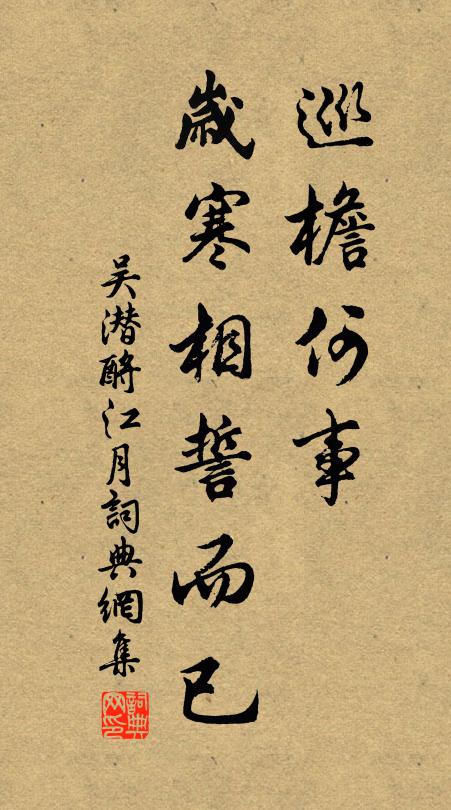 巡檐何事
歲寒相誓而已
吴潜酹江月詞典網集
詞典網印